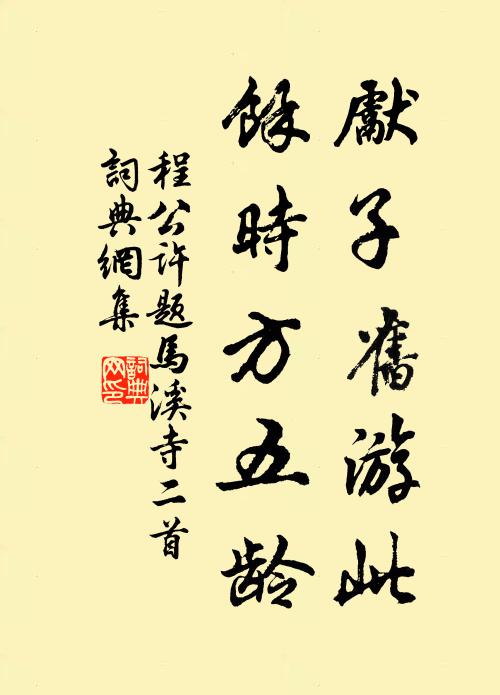 獻子舊游此
餘時方五龄
程公許題馬溪寺二首
詞典網集
詞典
网印